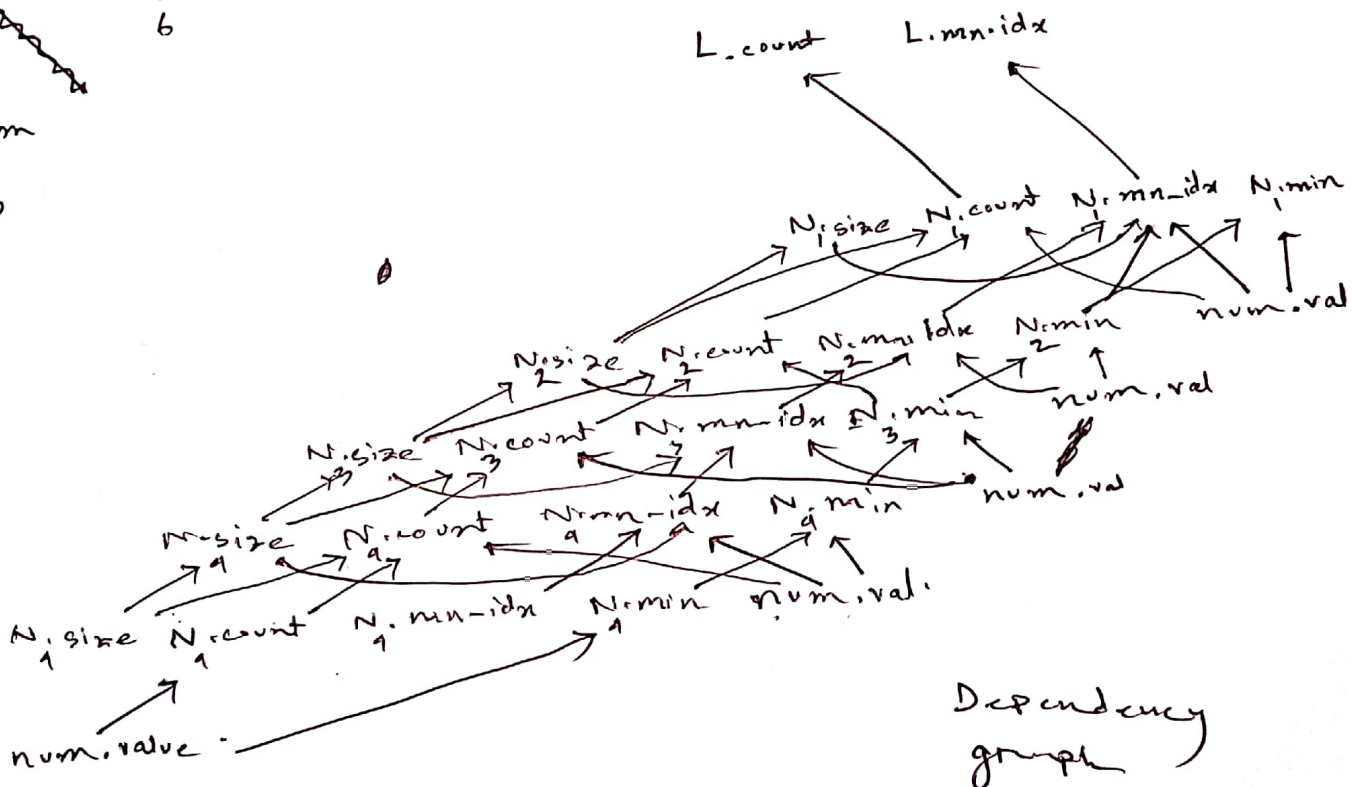 6
L.count L.mn-idx
m
N1.size N1.count N1.mn-idx N1.min
num.val
N2.size N2.count N2.mn-idx N2.min
num.val
N3.size N3.count N3.mn-idx N3.min
num.val
N4.size N4.count N4.mn-idx N4.min
num.val.
N4.size N4.count N4.mn-idx N4.min
num.value
Dependency
graph